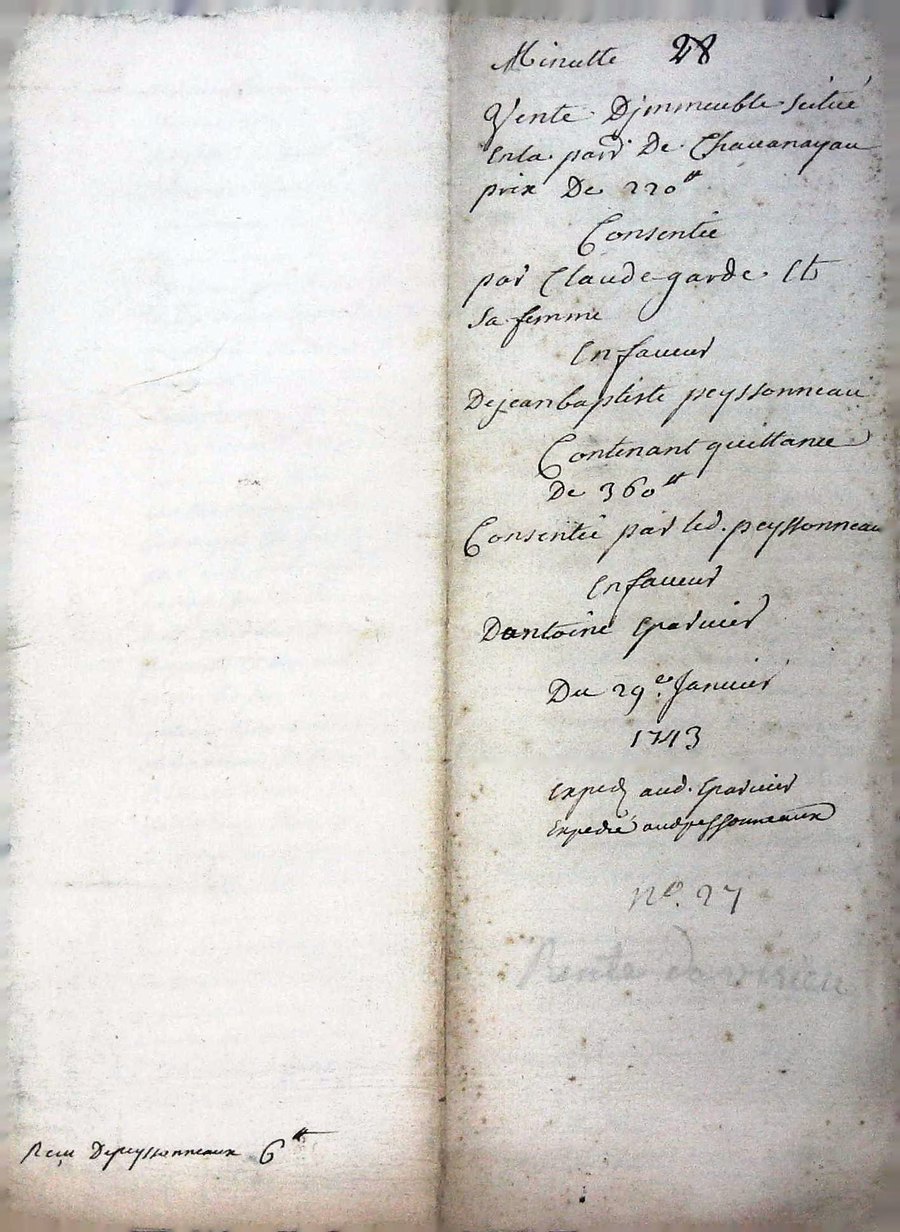 Minutte 28
Vente Djmmeuble scitué
Enla parr De Chauanay au
prix De 220tt
Consentie
par Claude garde Et
Sa femme
En faueur
Dejeanbaptiste peyssonneau
Contenant quittance
De 360tt
Consentie par led. peyssonneau
En faueur
Dantoine Eparuier
Du 29e Januier
1743
Exped aud. Eparuier
Expedié audpessonneaux
no. 27
Rente de virieu
Receu Depeyssonneaux 6tt